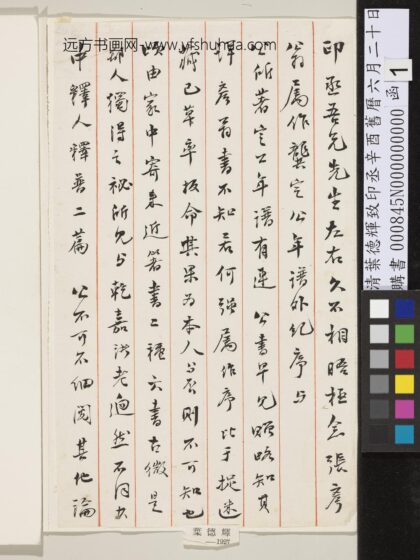 远方书画网: www.yfshuhua.com
印丞吾兄先生左右久不相晤極念張彥
翁屬作龔定公年譜外紀序与
公所著定公年譜有連 公書早見賜略知其
詳彥翁書不知若何強屬作序比于捉迷
藏已草率报命其果为本人与否則不可知也
頃由家中寄来近著書二種六書古微是
鄙人獨得之祕所見与乾嘉諸老迥然不同大
中釋人釋善二篇 公不可不細閱其他論
清葉德輝致印丞辛酉舊曆六月三十日
函
1
購書 000845N000000000
葉德輝
—1927